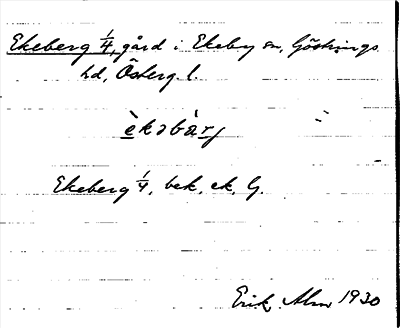 Ekeberg 1/4, gård i Ekeby sn, Göstrings
hd, Österg. l.
èkəbàrj
Ekeberg 1/4, bek., ek. G.
Erik Alm 1930